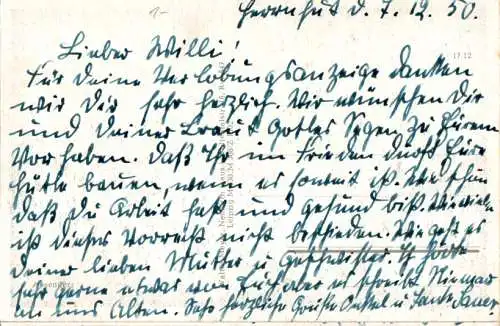 Herrnhut d. 7.12.50.
Lieber Willi!
Für deine Verlobungsanzeige danken
wir Dir sehr herzlich. Wir wünschen Dir
und deiner Braut Gottes Segen zu Eurem
Vorhaben. Daß Ihr im Frieden dürft Eure
Hütte bauen, wenn es soweit ist. Wie schön
daß Du Arbeit hast und gesund bist. Wievielen
ist dieses Vorrecht nicht beschieden. Wie geht es
deiner lieben Mutter u Geschwister. Ich hörte
sehr gerne etwas von Euch aber es schreibt Niemand
an uns Alten. Sehr herzliche Grüße Onkel u Tante
17 12